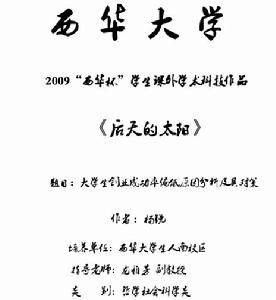 西华大学
2009“西华杯”学生课外学术科技作品
《后天的太阳》
题目：大学生创业成功率偏低原因分析及其对策
作者：杨锐
培养单位：西华大学生人南校区
指导老师：龙柏茎 副教授
类 别：哲学社会科学类